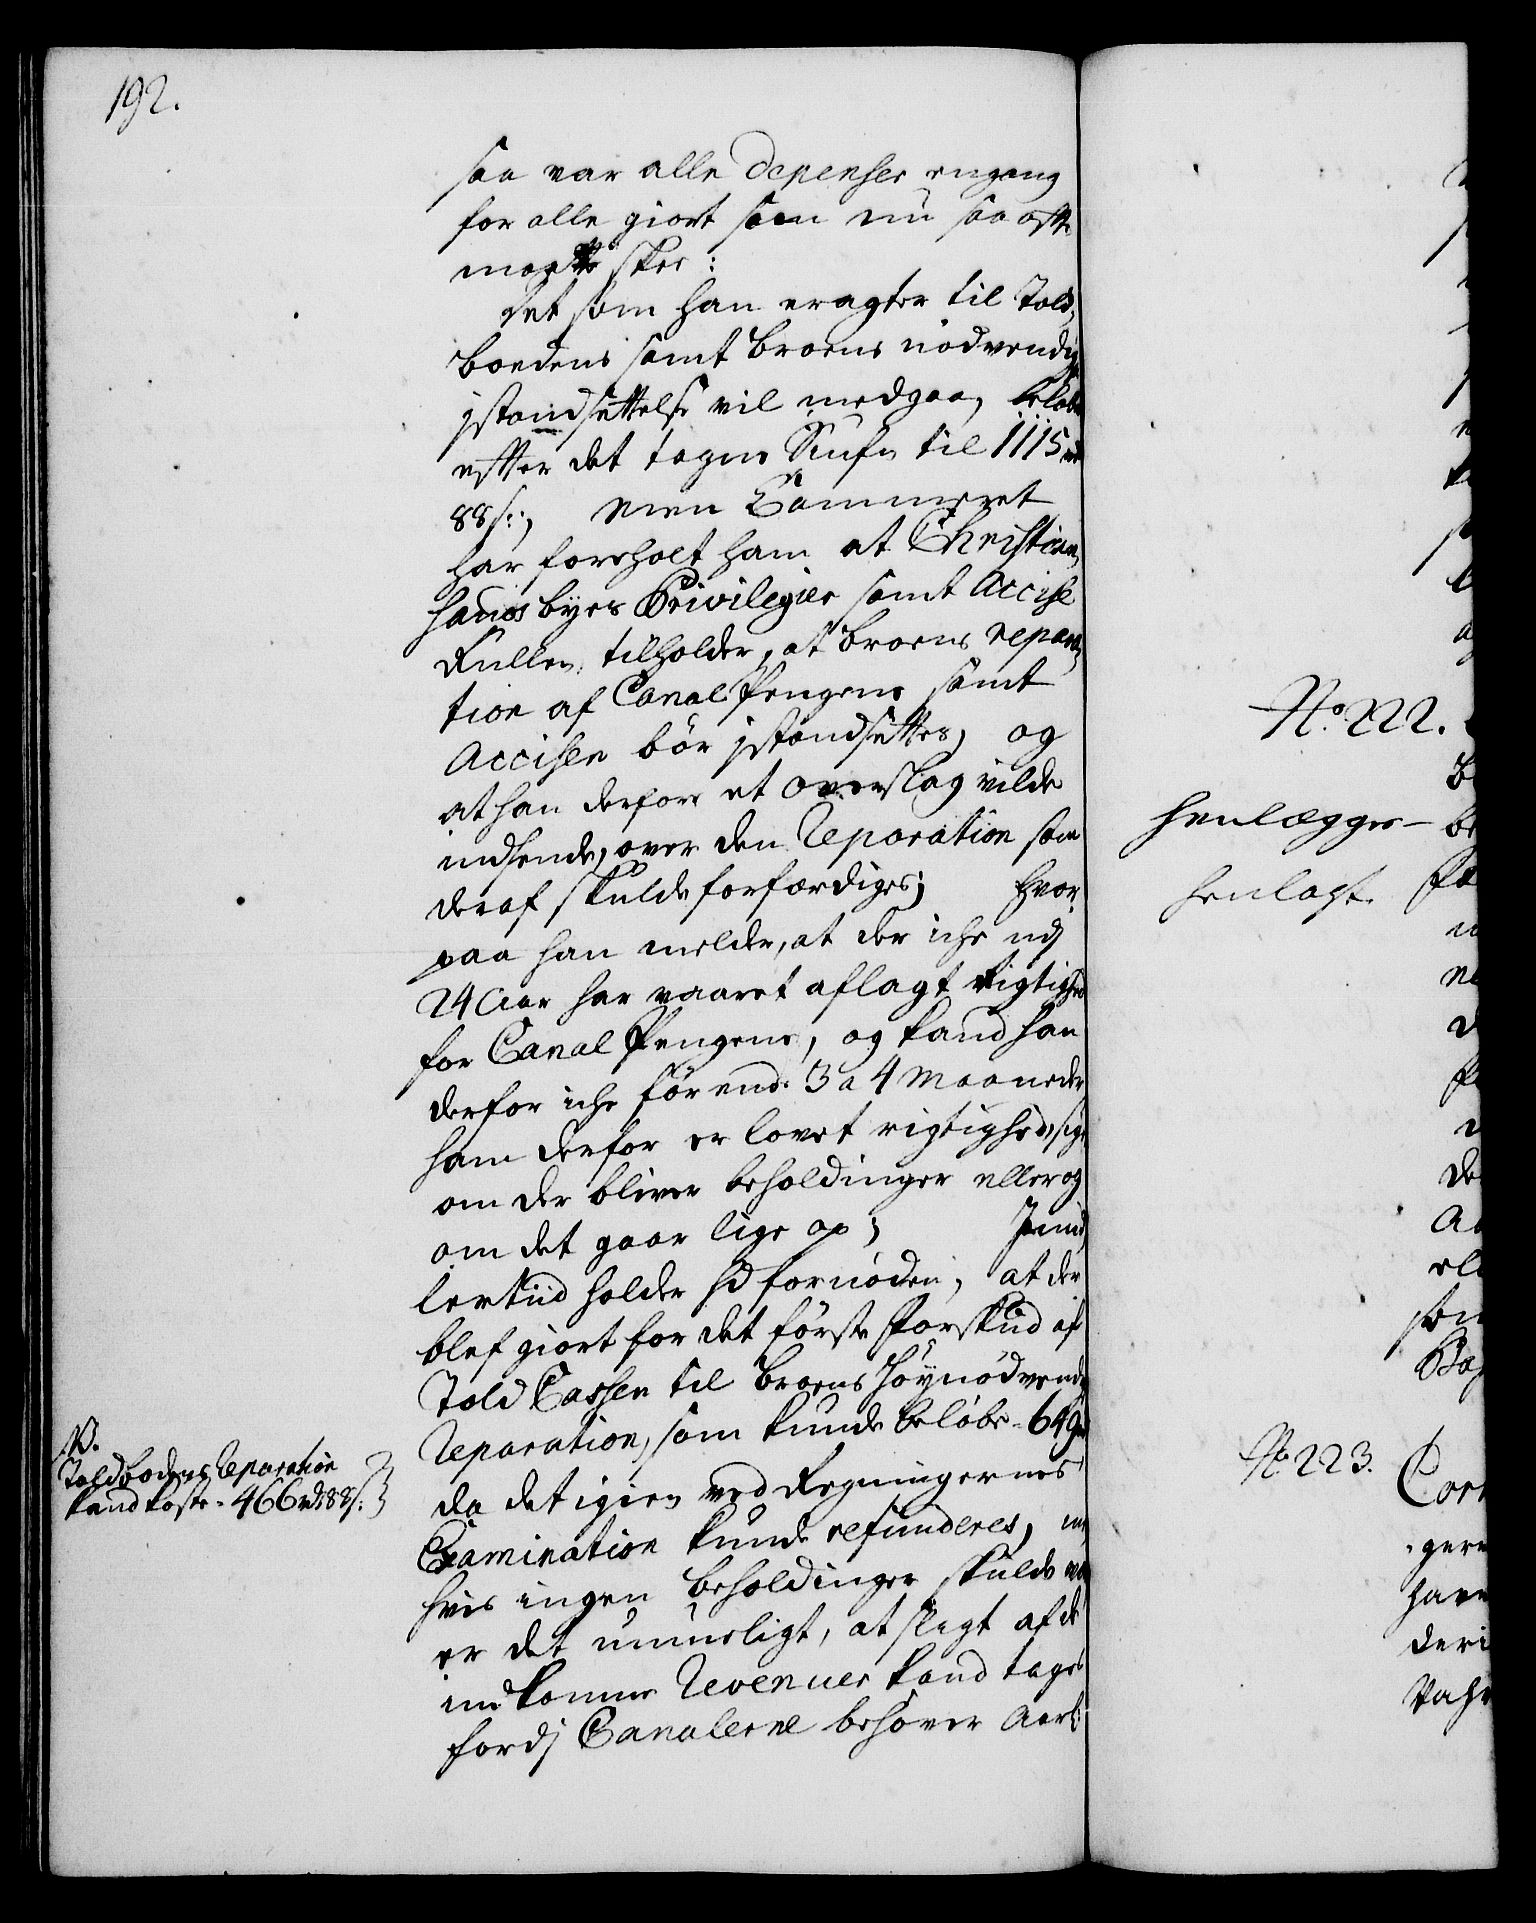 192.
saa var alle Depenser engang
for alle giort som nu saa ofte
maatte skee:
Det som han eragter til Told,
boedens samt broens nödvendige
jstandsettelse vil medgaa, beløber
efter det tagne Siufn til 1115 rd
88 s:, men Cammeret
har foreholt ham at Christian,
hauns byes Privilegier samt Accise
Rullen tilholder, at broens repara,
tion af Canal Pengene samt
Accisen bör jstandsettes, og
at han derfore et overslag vilde
indsende, over den Reparation som
deraf skulde forfærdiges; hvor,
paa han melder, at der iche udj
24 Aar har vaaret aflagt Rigtighed
for Canal Pengene, og kand han
derfor iche för end 3 a 4 Maaneder
ham derfor er lovet rigtighed, sige
om der bliver beholdinger eller og
om det gaar lige op; Jmid,
lertiid holder hand fornöden, at der
blef giort for det förste Forskud af
Told Cassen til broens höynödvendige
Reparation, som kunde beløbe 649 rd
da det igien ved Regningernes
Examination kunde refunderes, men
hvis ingen beholdinger skulde være
er det umueligt, at sligt af de
indkomne Revenuer kand tages
fordj Canalerne behöver Aarl:
NB.
Toldbodens Reparation
kand koste 466 rd 88 s:
No. 222.
henlægges
henlagt.
No. 223.